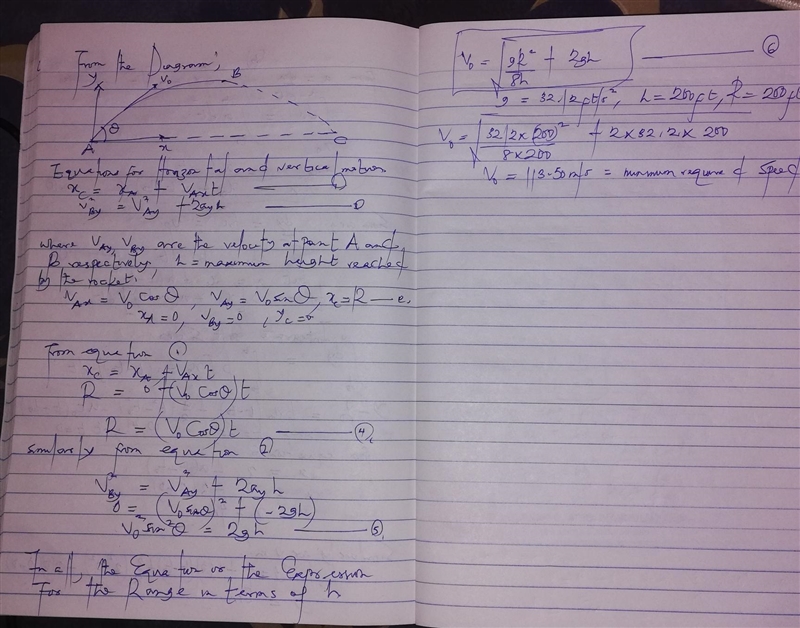 From the Diagram;
y
V₀
B
θ
A
x
C
Equations for Horizontal and vertical motion
x_C = x_A + V_Ax t ——— ①
V²_By = V²_Ay + 2a_y h ———
where V_Ay, V_By are the velocity at point A and
B respectively, h = maximum height reached
by the rocket.
V_Ax = V₀ cosθ , V_Ay = V₀ sinθ, x_C = R —
x_A = 0, V_By = 0 , y_C = 0
From equation ①
x_C = x_A + V_Ax t
R = 0 + (V₀ cosθ) t
R = (V₀ cosθ) t ——— ④
Similarly from equation ②
V²_By = V²_Ay + 2a_y h
0 = (V₀ sinθ)² + (-2gh)
V₀² sin²θ = 2gh ——— ⑤
the Equation or the Expression
For the Range in terms of h
V₀ = √(gR²/8h + 2gh) ——— ⑥
g = 32.12 ft/s², h = 200ft, R = 200ft
V₀ = √(32.2 x (200)²/8x200 + 2 x 32.2 x 200)
V₀ = 113.50m/s = minimum required speed